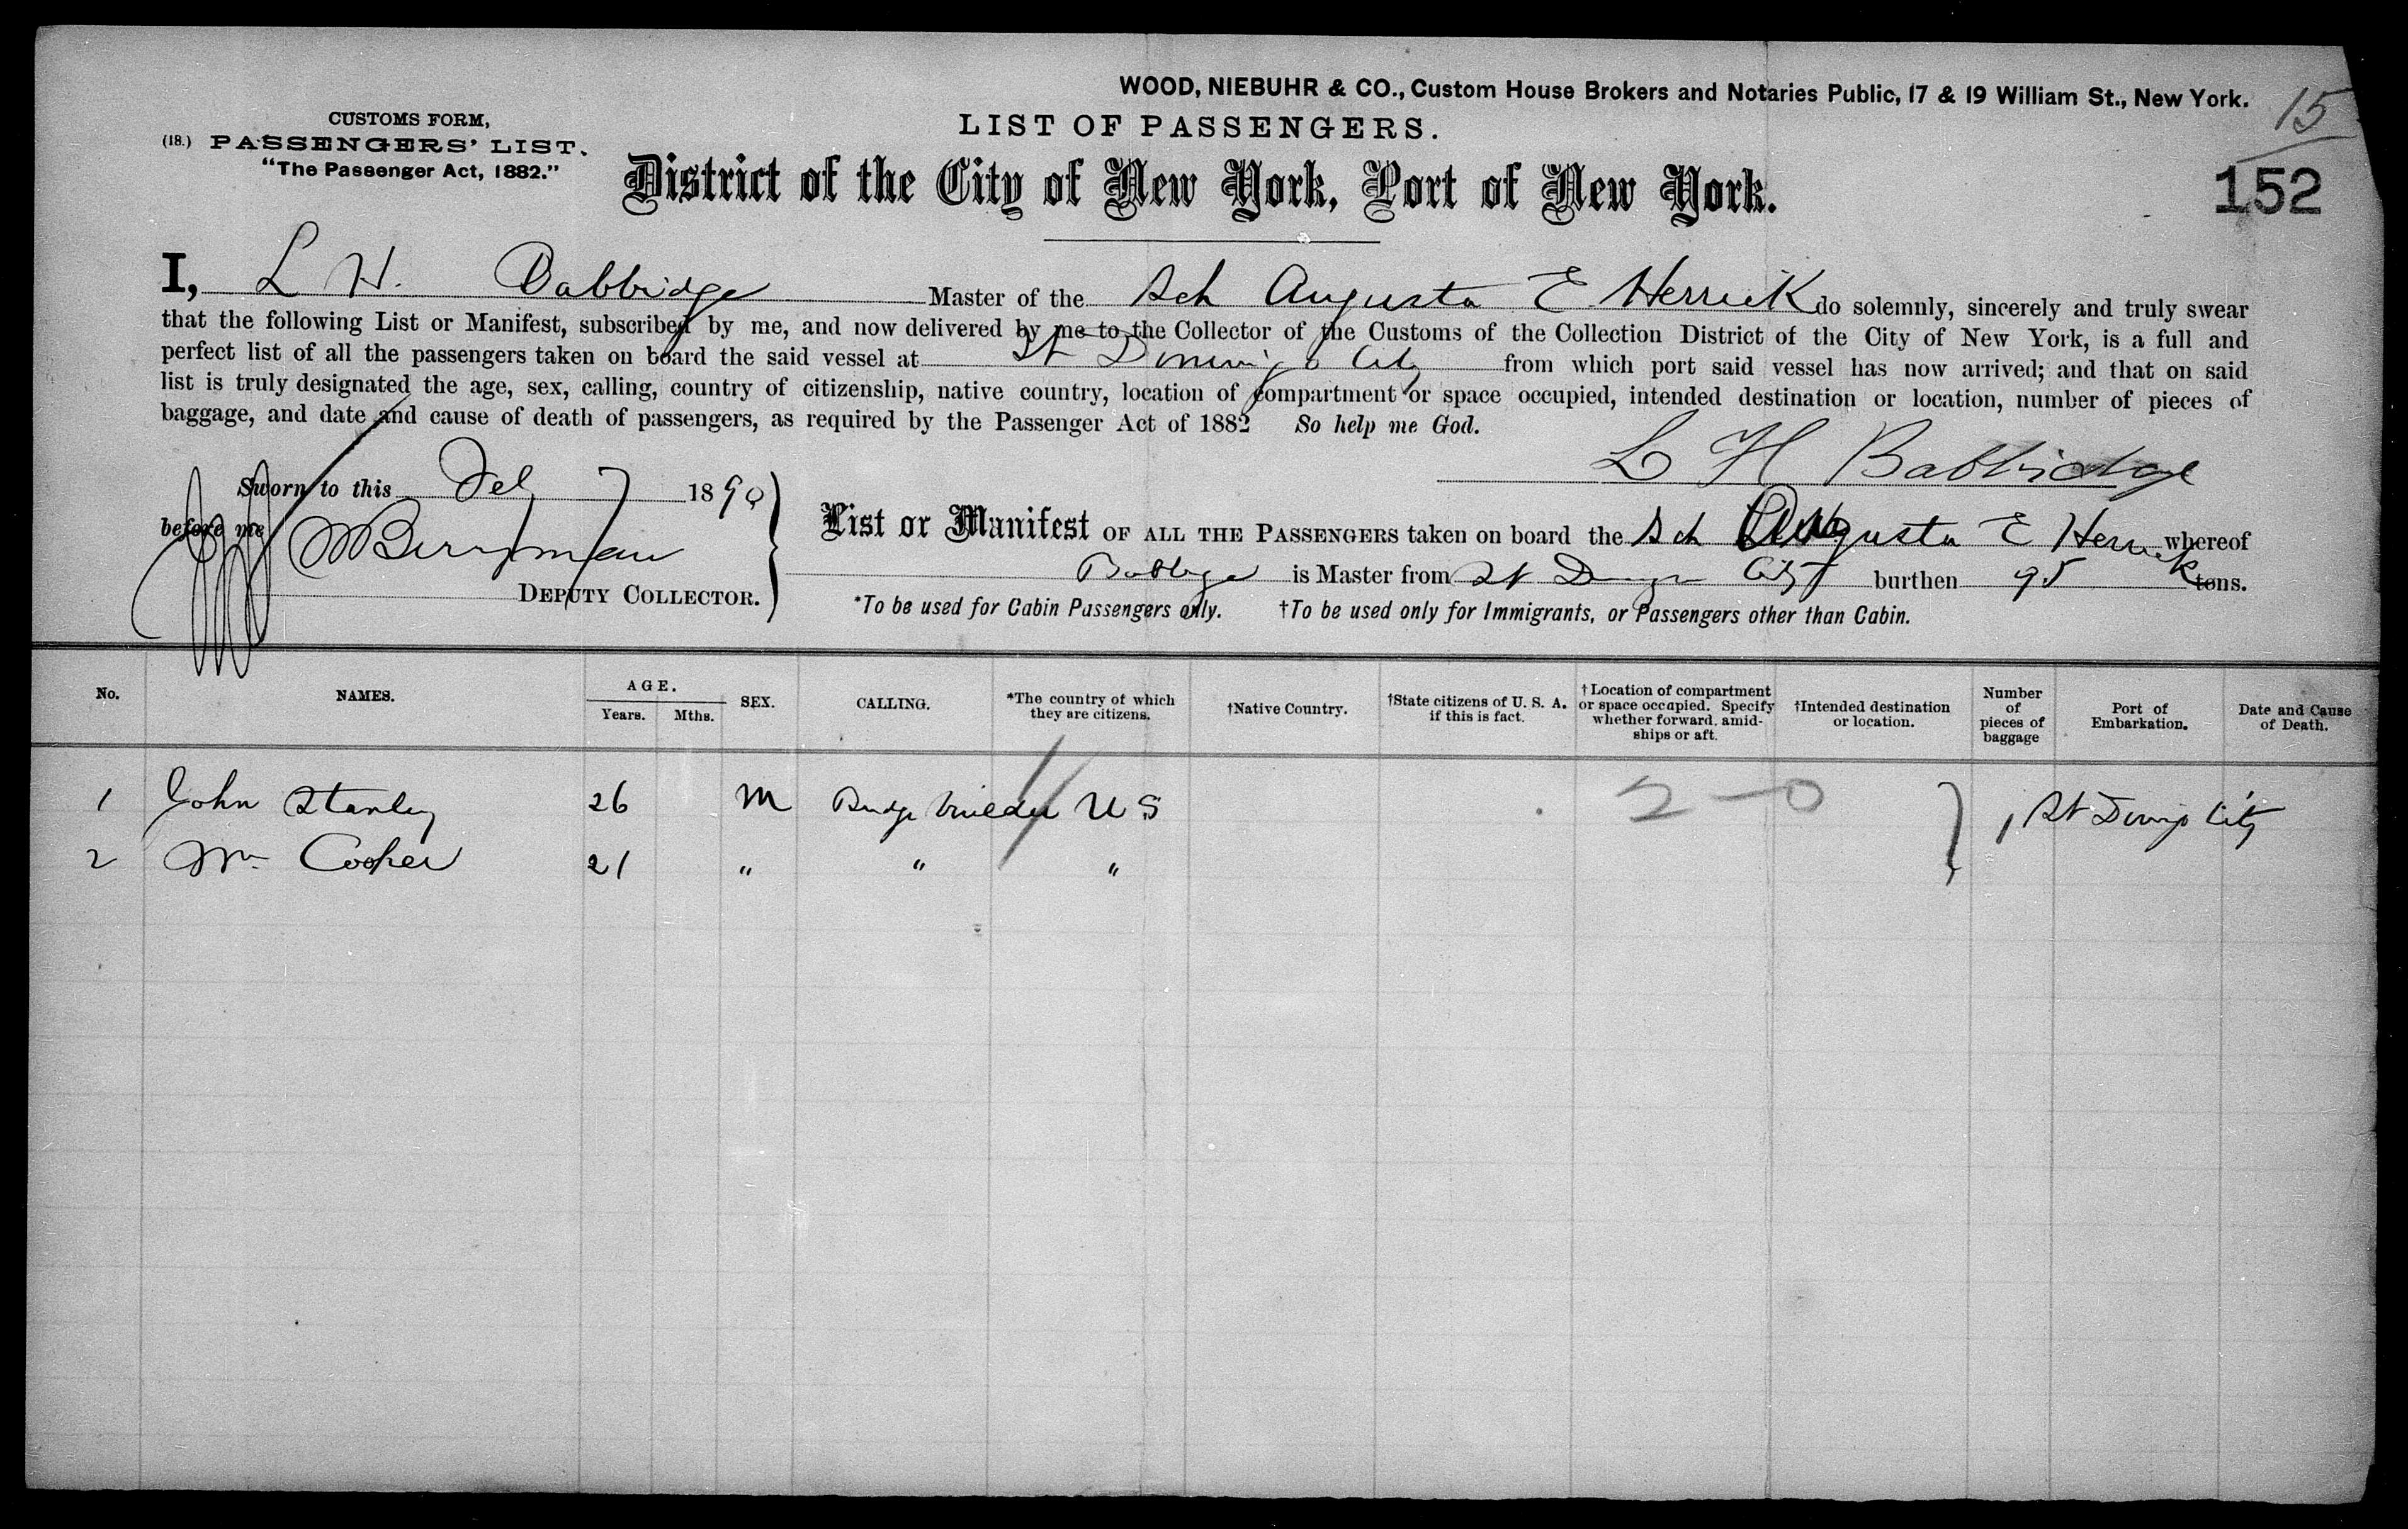 WOOD, NIEBUHR & CO., Custom House Brokers and Notaries Public, 17 & 19 William St., New York.
15
CUSTOMS FORM,
(18.) PASSENGERS' LIST.
"The Passenger Act, 1882."
LIST OF PASSENGERS.
District of the City of New York, Port of New York.
152
I, L H. Babbidge Master of the Sch Augusta E Herrick do solemnly, sincerely and truly swear
that the following List or Manifest, subscribed by me, and now delivered by me to the Collector of the Customs of the Collection District of the City of New York, is a full and
perfect list of all the passengers taken on board the said vessel at St Domingo City from which port said vessel has now arrived; and that on said
list is truly designated the age, sex, calling, country of citizenship, native country, location of compartment or space occupied, intended destination or location, number of pieces of
baggage, and date and cause of death of passengers, as required by the Passenger Act of 1882 So help me God.
L H Babbidge
Sworn to this Feb 7 1890
before me Berryman
DEPUTY COLLECTOR.
List or Manifest OF ALL THE PASSENGERS taken on board the Sch Augusta E Herrick whereof
Babbidge is Master from St Domingo City burthen 95 tons.
*To be used for Cabin Passengers only. †To be used only for Immigrants, or Passengers other than Cabin.
No. NAMES. AGE. Years. Mths. SEX. CALLING. *The country of which they are citizens. †Native Country. †State citizens of U. S. A. if this is fact. †Location of compartment or space occupied. Specify whether forward, amidships or aft. †Intended destination or location. Number of pieces of baggage Port of Embarkation. Date and Cause of Death.
1 John Stanley 26 M Bridge builder U S 2-0 1 St Domingo City
2 Wm Cooper 21 " " "